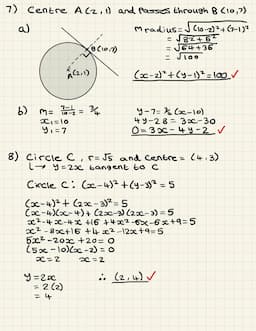 7) Centre A(2,1) and Passes through B(10,7)
a)
m radius = √(10-2)²+(7-1)²
= √8²+6²
= √64+36
= √100
B(10,7)
A(2,1)
(x-2)²+(y-1)²=100 ✓
b) m= 7-1/10-2 = 3/4
x₁=10
y₁=7
y-7=¾(x-10)
4y-28=3x-30
0=3x-4y-2 ✓
8) Circle C, r=√5 and centre=(4,3)
↳ y=2x tangent to C
Circle C: (x-4)²+(y-3)²=5
(x-4)²+(2x-3)²=5
(x-4)(x-4)+(2x-3)(2x-3)=5
x²-4x-4x+16+4x²-6x-6x+9=5
x²-8x+16+4x²-12x+9=5
5x²-20x+20=0
(5x-10)(x-2)=0
x=2 x=2
y=2x
= 2(2)
= 4
∴ (2,4) ✓